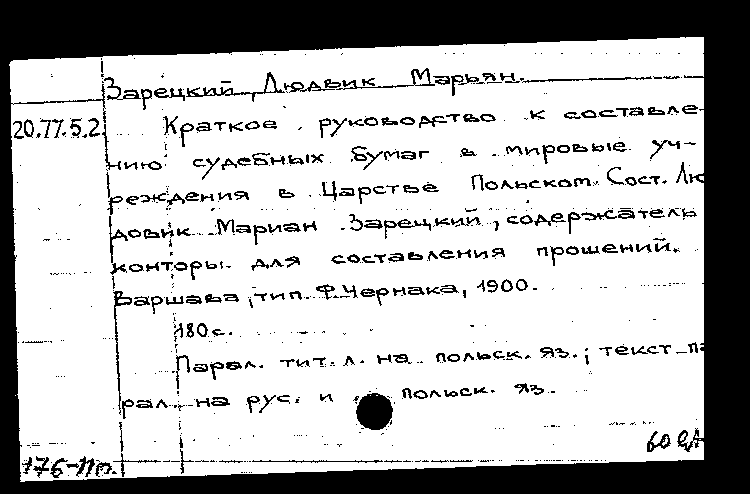 Зарецкий, Людвик Марьян.
20.77.5.2. Краткое руководство к составле-
нию судебных бумаг в мировые уч-
реждения в Царстве Польском. Сост. Лю
довик Мариан Зарецкий, содержатель
конторы для составления прошений.
Варшава, тип. Ф. Чернака, 1900.
180 с.
Парал. тит. л. на польск. яз.; текст па
рал. на рус. и польск. яз.